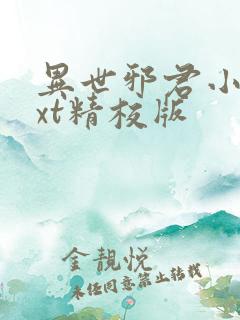 異世邪君小
xt精校版
金靚悅
未经同意禁止转载